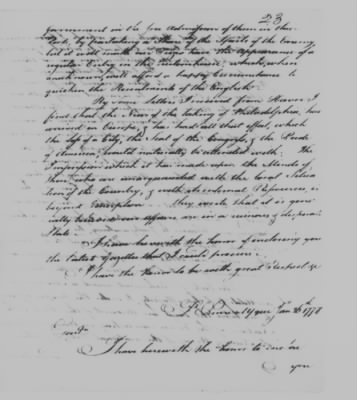 23
government in the free admission of them in their
Ports, by partaking
but it will with our Enemies have the Appearance of a
regular Entry in the Custom house; which, when
made known, will afford a happy Circumstance to
quicken the Resentment of the English.
By some Letters I received from Havre I
find, that the News of the taking of Philadelphia, has
arrived in Europe, & has had all that effect, which
the loss of a City, the Seat of the Congress, & the Pride
of America, could naturally be attended with. The
Impression which it has made upon the Minds of
those who are unacquainted with the local Situa
tion of the Country, & with its internal Resources, is
beyond Conception. They write that it is gene
rally believed our affairs are in a ruinous & desperate
State.
I have herewith the honor of enclosing you
the latest Gazettes that I could procure.
I have the Honor to be with great Respect &c
Jan 26th 1778
I have herewith the honor to
you